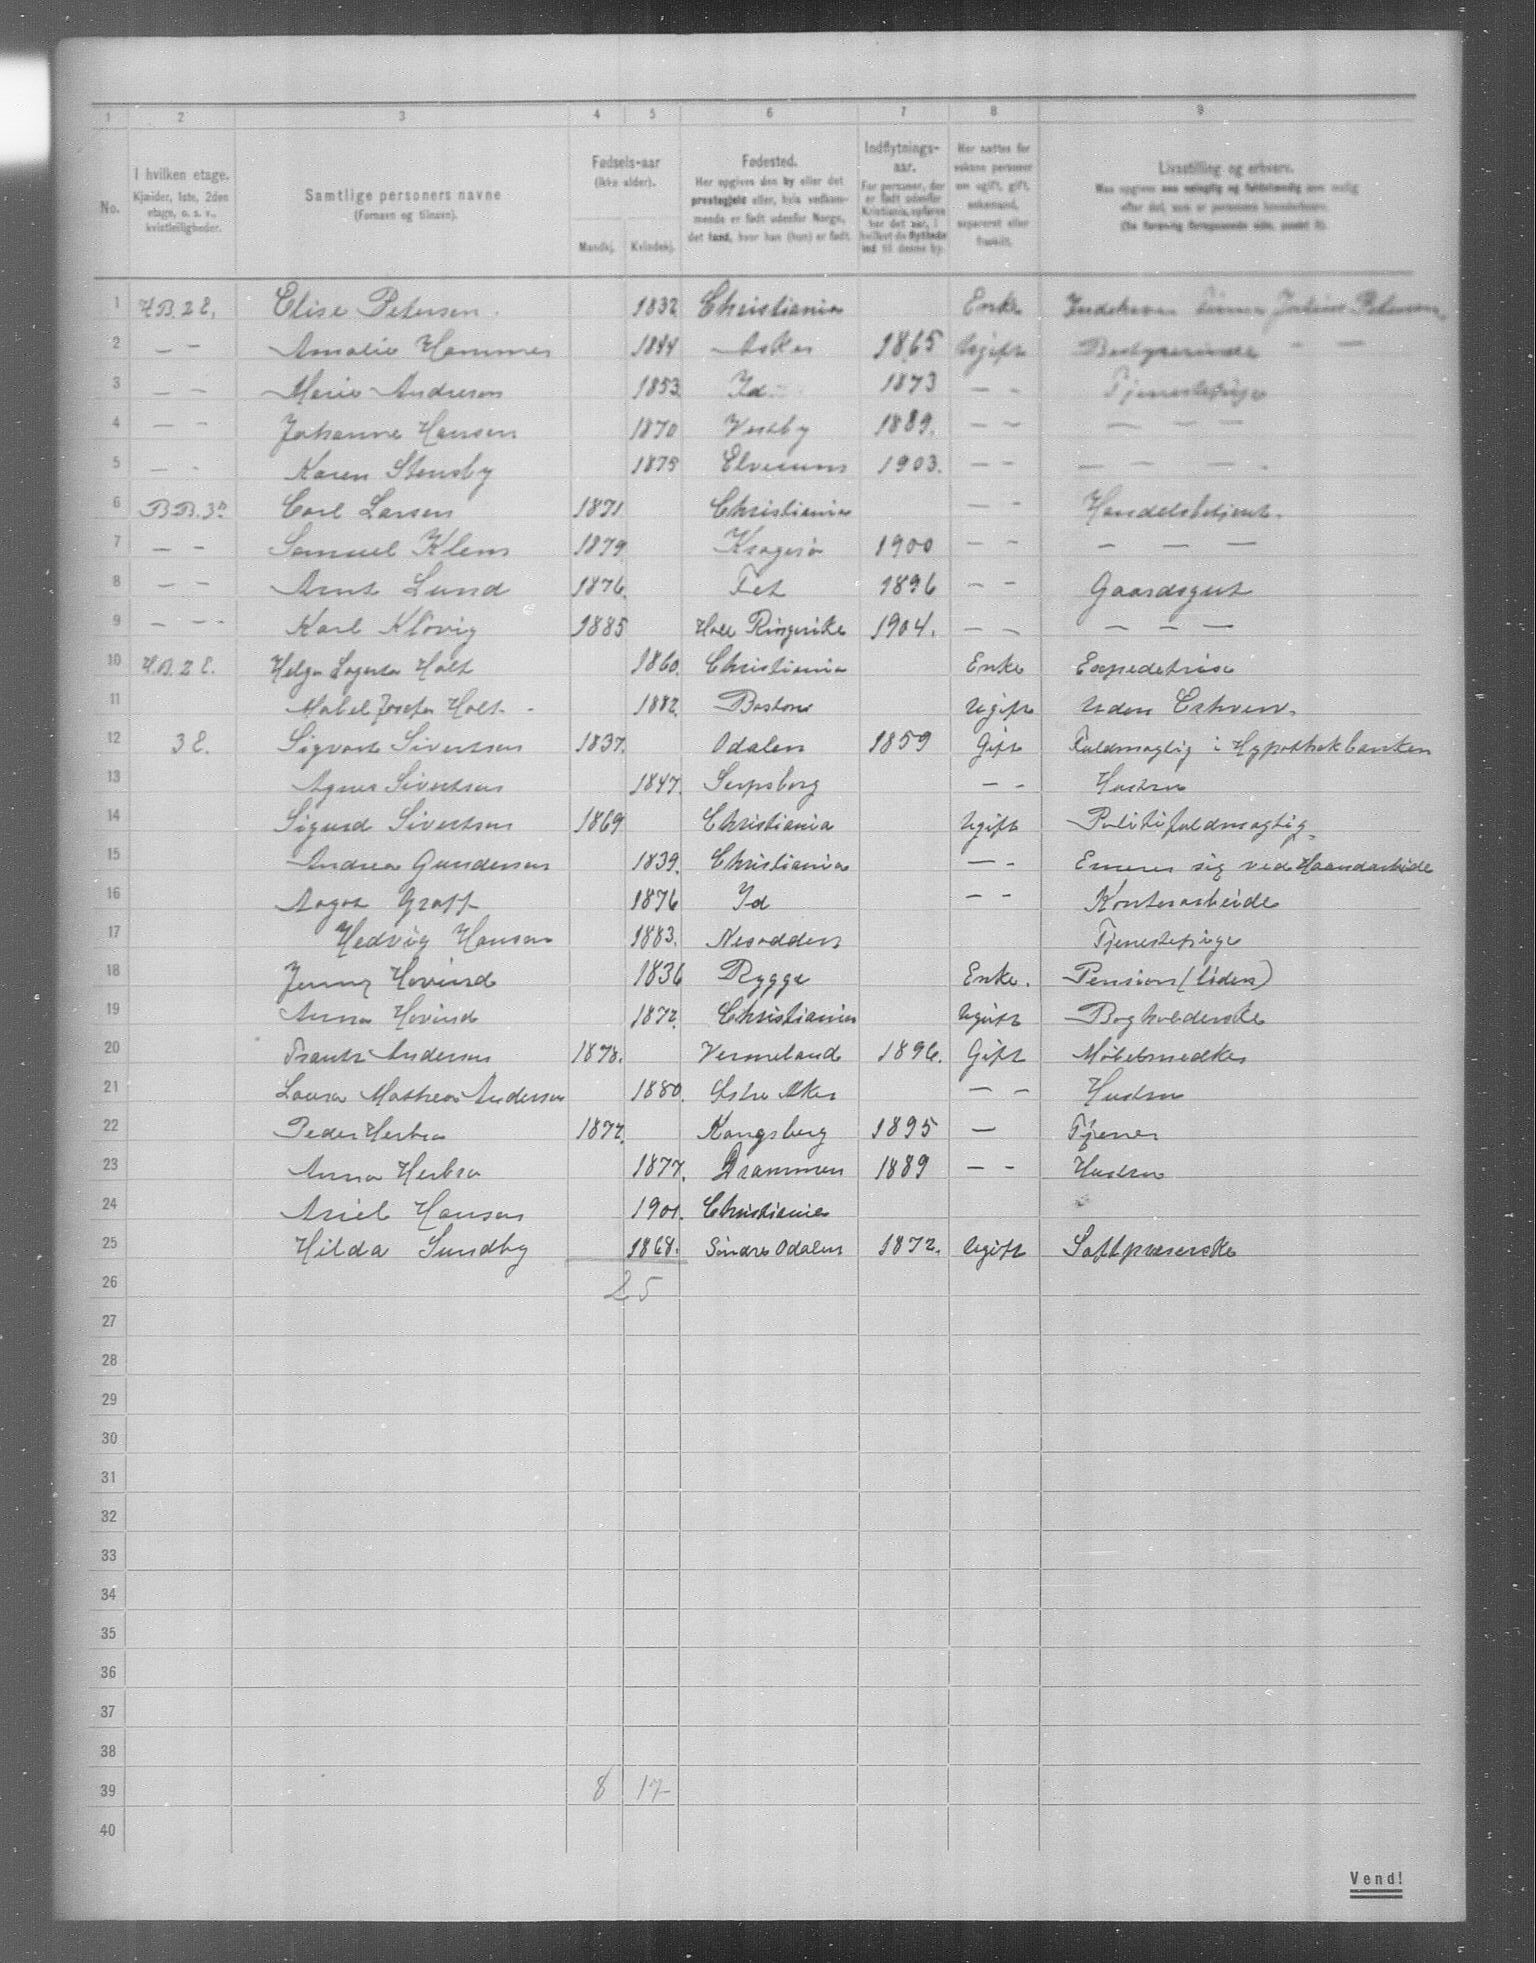 1 2 3 4 5 6 7 8 9
No.
I hvilken etage.
Kjælder, 1ste, 2den etage, o. s. v., kvistleiligheder.
Samtlige personers navne
(Fornavn og tilnavn).
Fødsels-aar
(ikke alder).
Mandkj. Kvindekj.
Fødested.
Her opgives den by eller det
præstegjeld eller, hvis vedkom-
mende er født udenfor Norge,
det land, hvor han (hun) er født.
Indflytnings-
aar.
For personer, der
er født udenfor
Kristiania, opføres
her det aar, i
hvilket de flyttede
ind til denne by.
Her sættes for
voksne personer
om ugift, gift,
enkemand,
separeret eller
fraskilt.
Livsstilling og erhverv.
1 H.B. 2 E. Elise Petersen. 1832 Christiania Enke Indehaver Firma Petersen
2 — — Amalie Hammer 1844 Asker 1865 Ugift Bestyrerinde — —
3 — — Marie Andresen 1853 Id 1873 — — Tjenestepige
4 — — Johanne Hansen 1870 Vestby 1889. — — — — —
5 — - Karen Stensby 1875 Elverum 1903. — — — — — .
6 B.B. 3 Carl Larsen 1871 Christiania — - Handelsbetjent.
7 — — Samuel Klem 1879 Kragerø 1900 — — — — —
8 — — Arnt Lund 1876 Fet 1896 — — Gaardsgut
9 — — - Karl Klovig 1885 Hole Ringerike 1904. — — — — —
10 H.B. 2 E. Helga Holt 1860. Christiania Enke Expeditrise
11 Mabel Josefa Holt - 1882. Boston Ugift Uden Erhverv.
12 3 E. Sigvart Sivertsen 1837. Odalen 1859 Gift Fuldmægtig i Hypothekbanken
13 Agnes Sivertsen 1847. Sarpsborg — - Hustru
14 Sigurd Sivertsen 1869 Christiania Ugift Politifuldmægtig.
15 Andrea Gundersen 1839. Christiania — - Ernærer sig ved Haandarbeide
16 Aagot Graff 1876 Id — - Kontorarbeide
17 Hedvig Hansen 1883. Nesodden Tjenestepige
18 Jenny Hovind 1836 Rygge Enke. Pension (Liden)
19 Anna Hovind 1872. Christiania Ugift Bogholderske
20 Frantz Andersen 1878. Vermeland 1896. Gift Møbelsnedker
21 Laura Mathea Andersen 1880. Østre Aker — — Hustru
22 Peder Herbra 1872. Kongsberg 1895 — Tjener
23 Anna Herbra 1877. Drammen 1889 — - Hustru
24 Hansen 1901. Christiania
25 Hilda Sundby 1868. Søndre Odalen 1872. Ugift Saftpresserske
26 25
27
28
29
30
31
32
33
34
35
36
37
38
39 8 17
40
Vend!